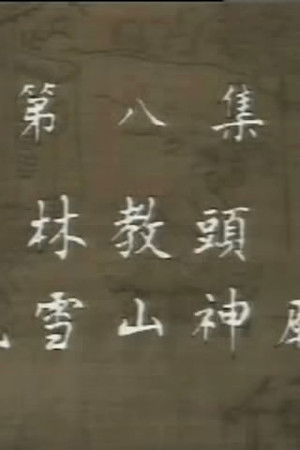 第八集
林教頭
雪山神